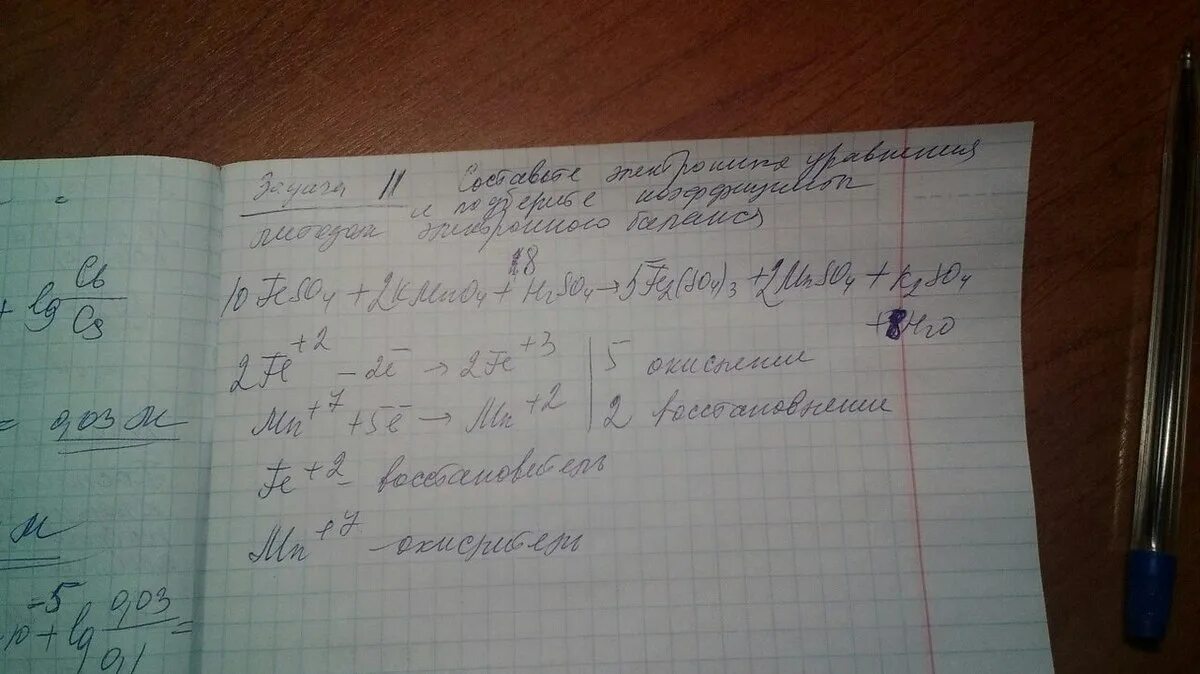 =
+ lg Cb/Cs
= 0,03 M
M
-5
10 + lg 0,03/0,1 =
Задача 11 Составьте электронные уравнения
и подберите коэффициенты
методом электронного баланса
8
10 FeSO4 + 2KMnO4 + H2SO4 → 5Fe2(SO4)3 + 2MnSO4 + K2SO4
+ 8H2O
2Fe+2 - 2ē → 2Fe+3 | 5 окисление
Mn+7 + 5ē → Mn+2 | 2 восстановление
Fe+2 - восстановитель
Mn+7 - окислитель